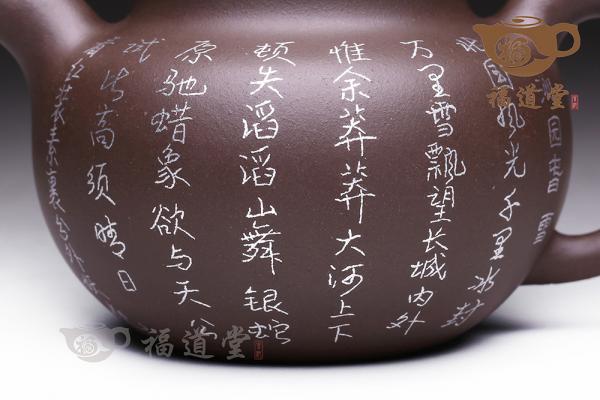 园春雪
北国风光千里冰封
万里雪飘望长城内外
惟余莽莽大河上下
顿失滔滔山舞银蛇
原驰蜡象欲与天公
试比高须晴日
红装素裹分外
福道堂
福道堂